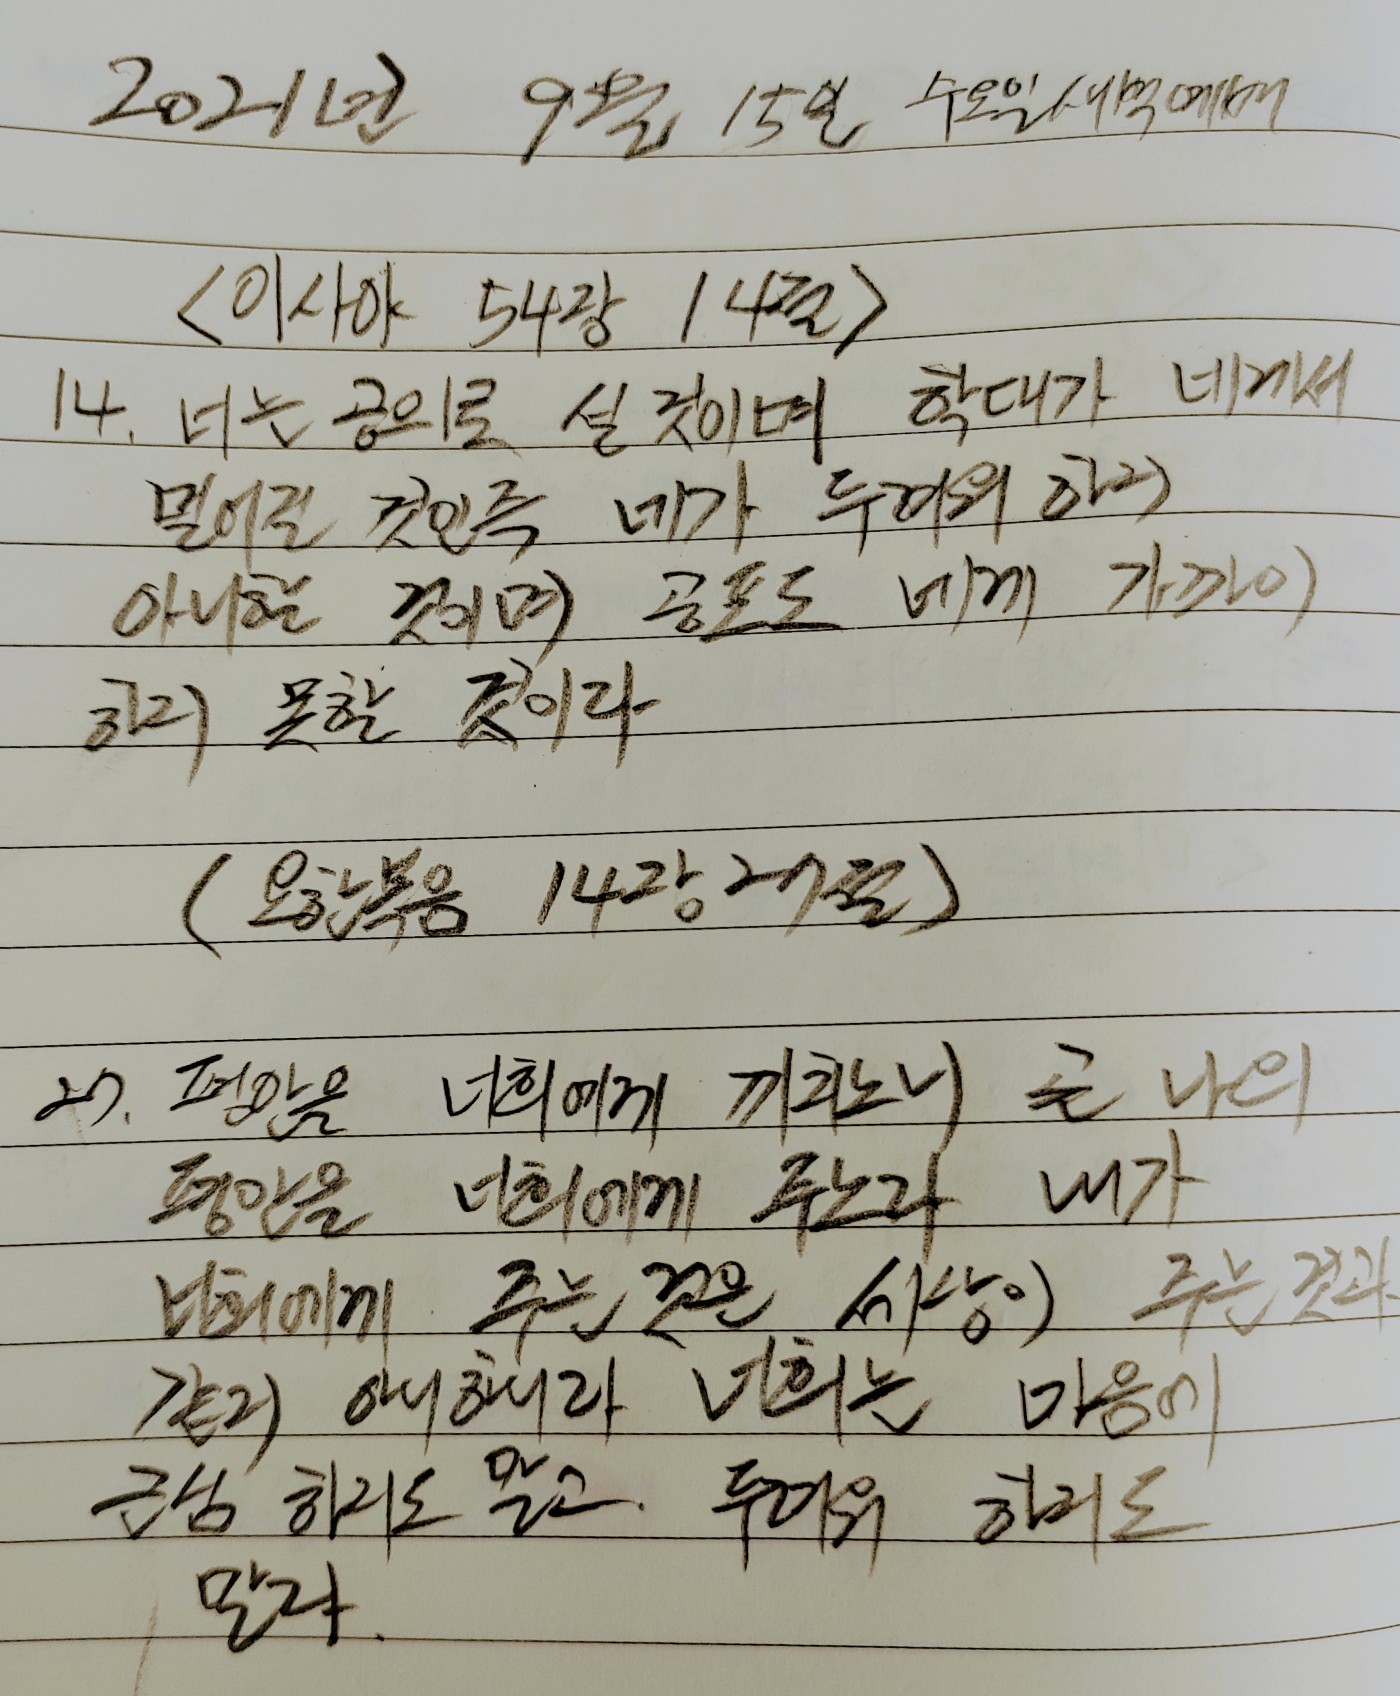 2021년 9월 15일 수요일새벽예배
<이사야 54장 14절>
14. 너는 공의로 설 것이며 학대가 네게서
멀어질 것인즉 네가 두려워 하지
아니할 것이며 공포도 네게 가까이
하지 못할 것이라
(요한복음 14장 27절)
27. 평안을 너희에게 끼치노니 곧 나의
평안을 너희에게 주노라 내가
너희에게 주는 것은 세상이 주는 것과
같지 아니하니라 너희는 마음에
근심 하지도 말고. 두려워 하지도
말라.